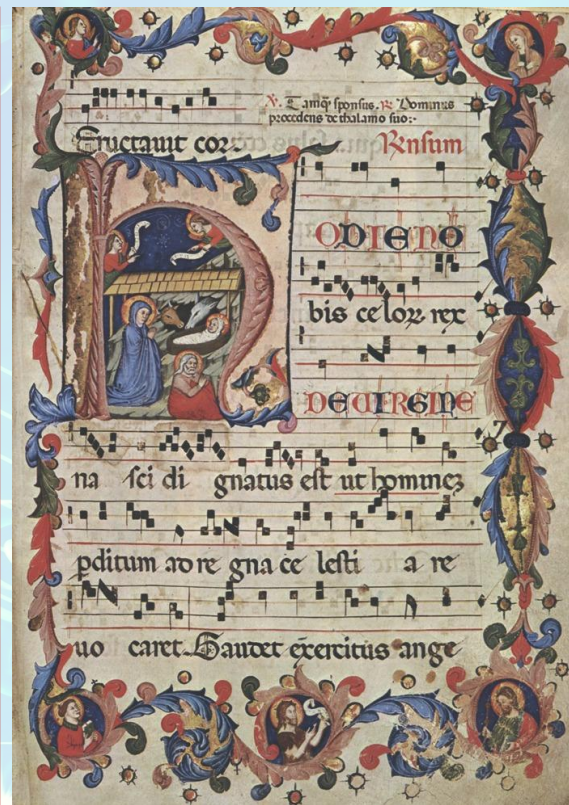 ℣. Tamq̄ sponsus. ℞. Dominus
procedens de thalamo suo:-
Eructauit cor:- Rnsum
HODIE NO
bis celoꝝ rex
DE VIRGINE
na sci di gnatus est ut hominez
pditum ad re gna ce lesti a re
uo caret. Gaudet exercitus ange